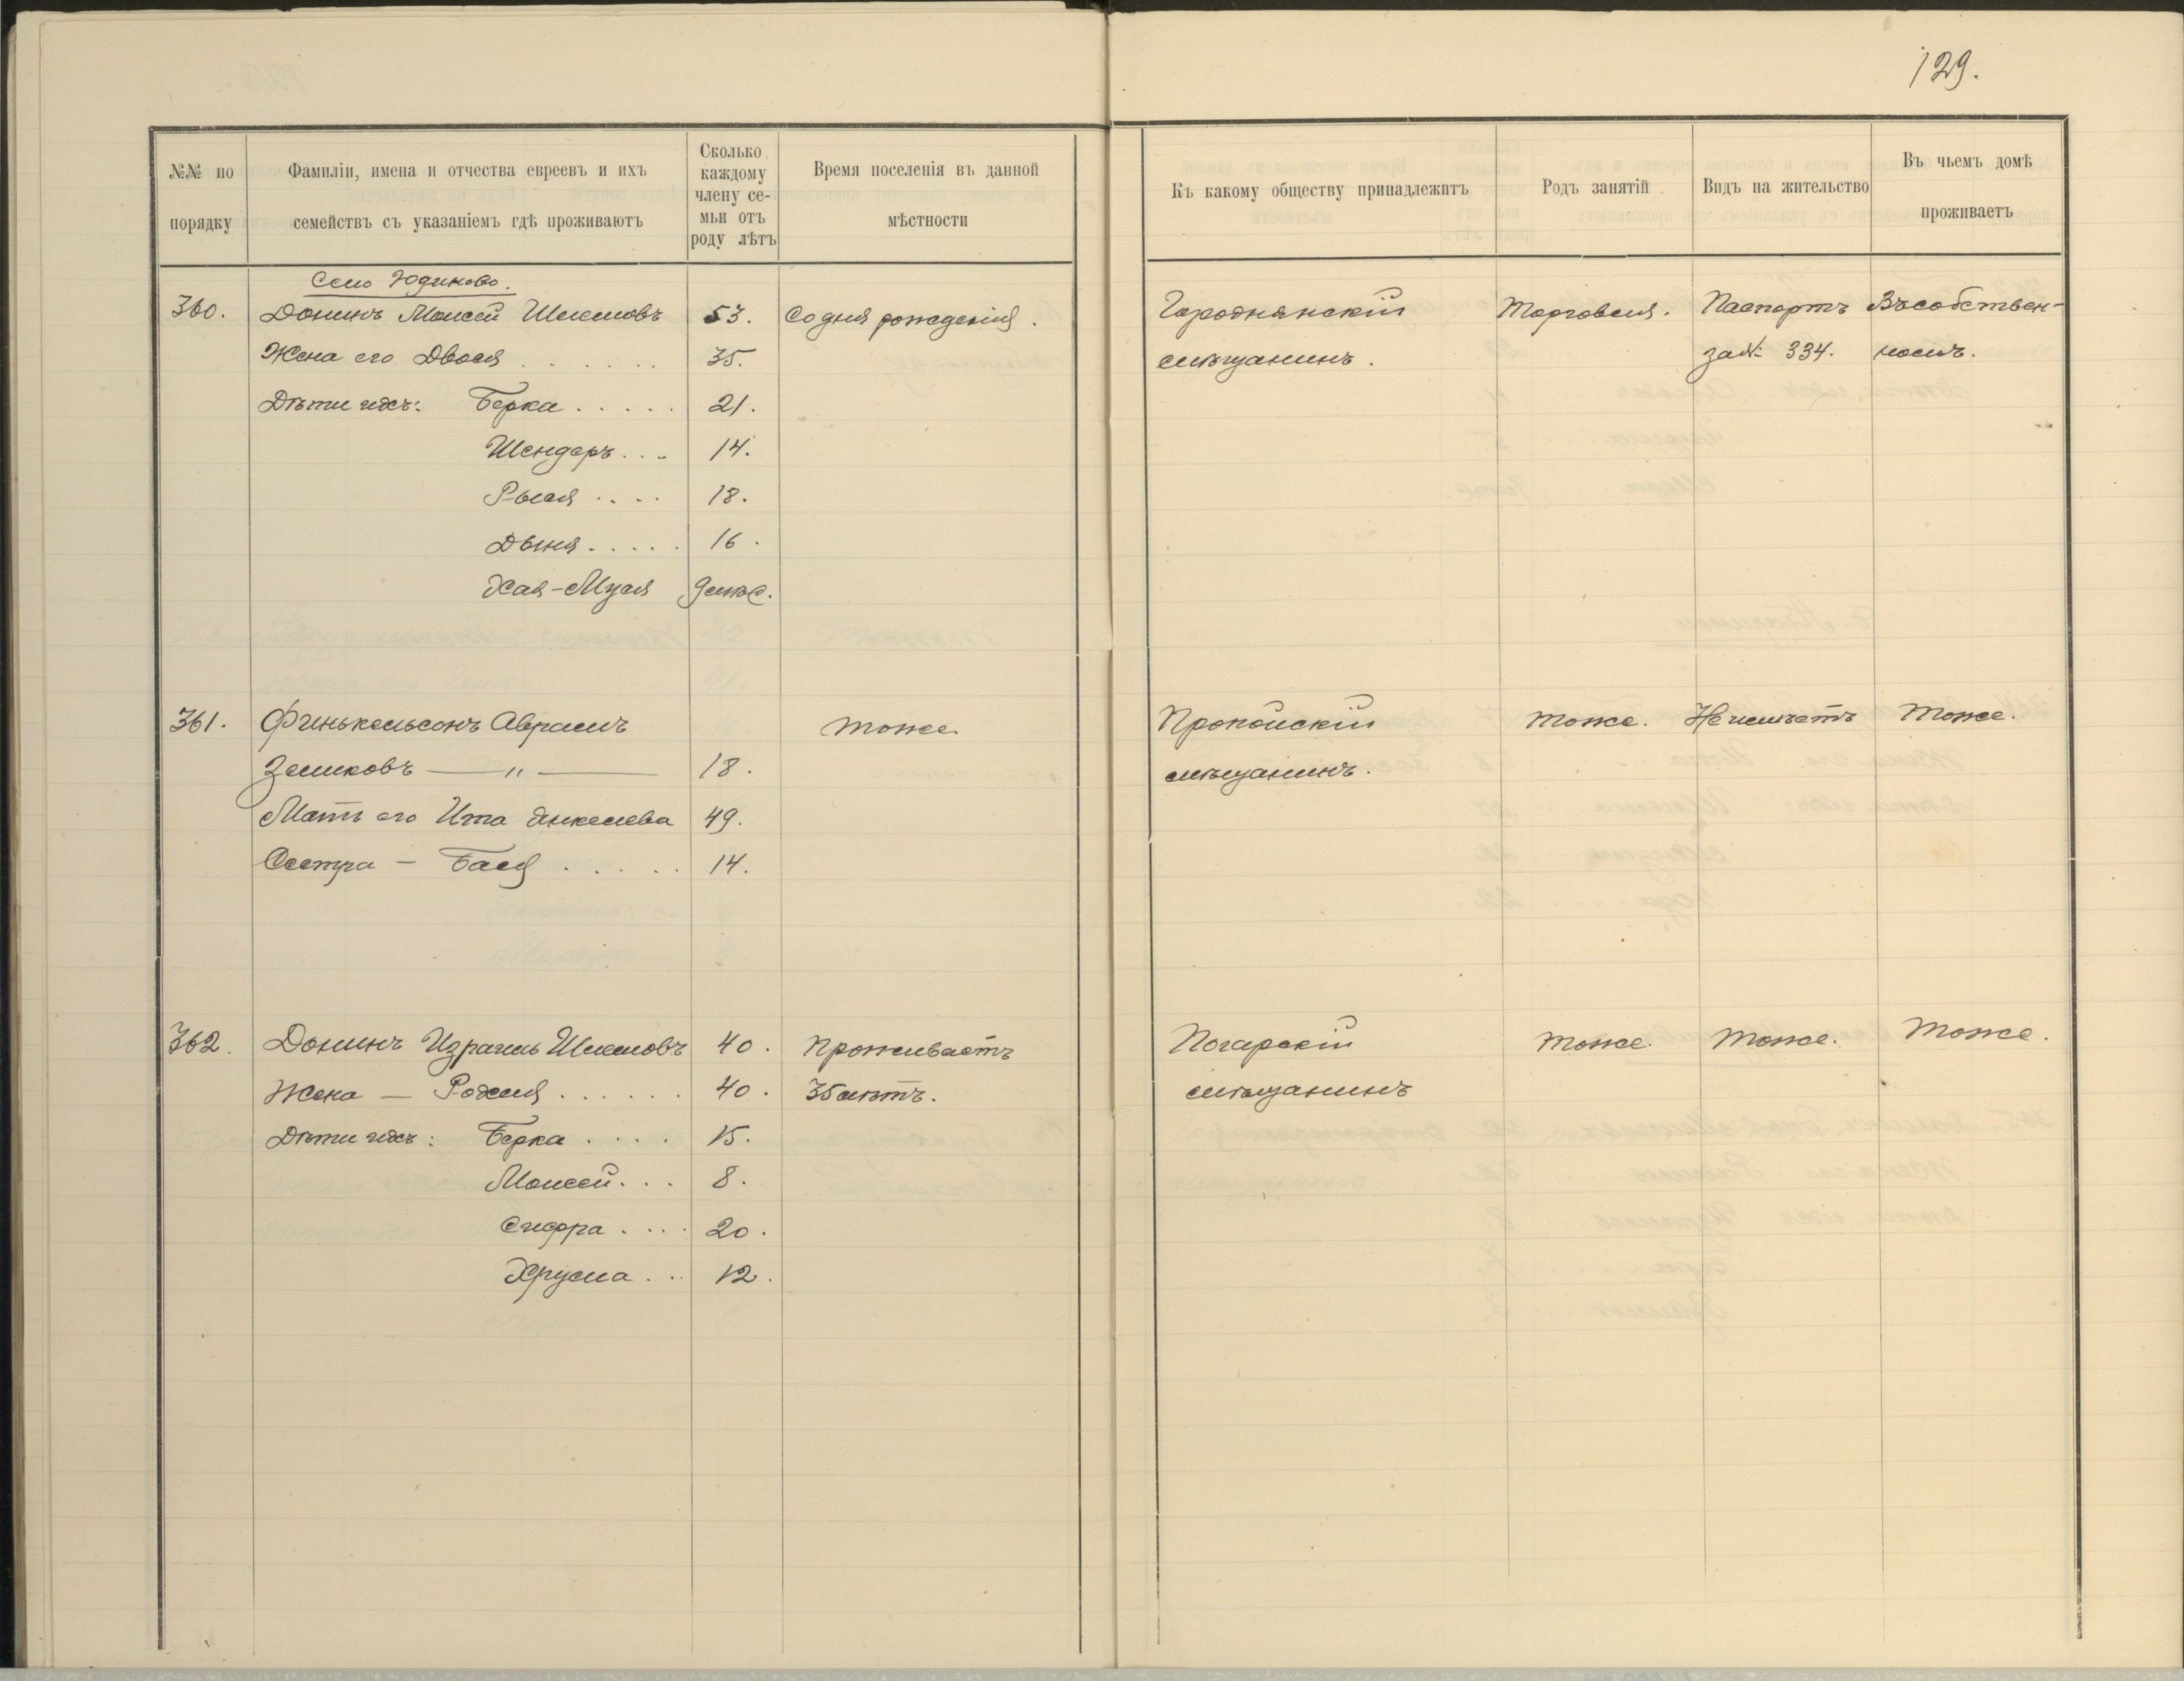 129.
№№ по
порядку
Фамиліи, имена и отчества евреевъ и ихъ
семействъ съ указаніемъ гдѣ проживаютъ
Сколько
каждому
члену се-
мьи отъ
роду лѣтъ
Время поселенія въ данной
мѣстности
Къ какому обществу принадлежитъ
Родъ занятій
Видъ на жительство
Въ чьемъ домѣ
проживаетъ
Село Юдиново.
360. Донинъ Моисей Шлемовъ 53. Со дня рожденія. Городнянскій Торговля. Паспортъ Въ собствен-
Жена его Двося 35. мѣщанинъ. за № 334. номъ.
Дѣти ихъ: Берка 21.
Шендеръ 14.
Рыся 18.
Дыня 16.
Хая-Муся 9 мѣс.
361. Финькельсонъ Аврамъ тоже Пропойскій тоже. Не имѣетъ тоже.
Зеликовъ — " — 18. мѣщанинъ.
Мать его Ита Янкелева 49.
Сестра — Бася 14.
362. Донинъ Израиль Шлемовъ 40. проживаетъ Погарскій тоже. тоже. тоже.
Жена — Рохля 40. 35 лѣтъ. мѣщанинъ
Дѣти ихъ: Берка 15.
Моисей 8.
Сифра 20.
Хрума 12.